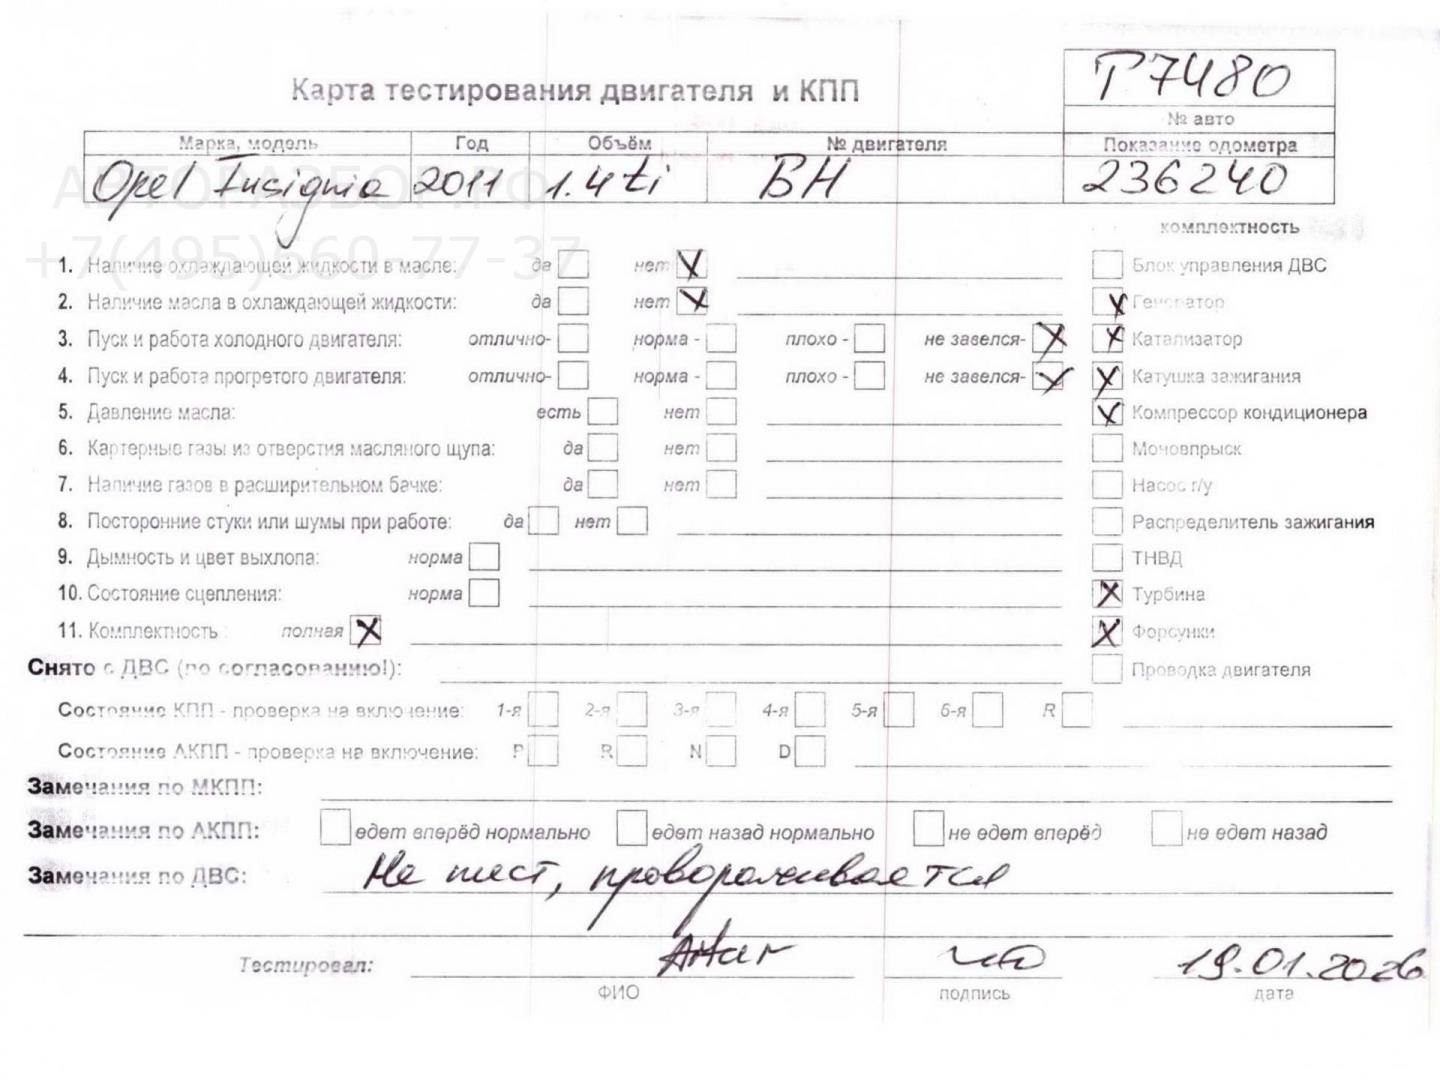 Карта тестирования двигателя и КПП
Р7480
№ авто
Марка, модель Год Объём № двигателя Показание одометра
Opel Insignia 2011 1.4 ti ВН 236240
АВТОРАЗБОР.РФ
+7(495)660-77-37
комплектность
1. Наличие охлаждающей жидкости в масле: да нет X Блок управления ДВС
2. Наличие масла в охлаждающей жидкости: да нет X X Генератор
3. Пуск и работа холодного двигателя: отлично- норма - плохо - не завелся- X X Катализатор
4. Пуск и работа прогретого двигателя: отлично- норма - плохо - не завелся- X X Катушка зажигания
5. Давление масла: есть нет X Компрессор кондиционера
6. Картерные газы из отверстия масляного щупа: да нет Моновпрыск
7. Наличие газов в расширительном бачке: да нет Насос г/у
8. Посторонние стуки или шумы при работе: да нет Распределитель зажигания
9. Дымность и цвет выхлопа: норма ТНВД
10. Состояние сцепления: норма X Турбина
11. Комплектность : полная X X Форсунки
Снято с ДВС (по согласованию!): Проводка двигателя
Состояние КПП - проверка на включение: 1-я 2-я 3-я 4-я 5-я 6-я R
Состояние АКПП - проверка на включение: P R N D
Замечания по МКПП:
Замечания по АКПП: едет вперёд нормально едет назад нормально не едет вперёд не едет назад
Замечания по ДВС: Не тест, проворачивается
Тестировал: 19.01.2026
ФИО подпись дата